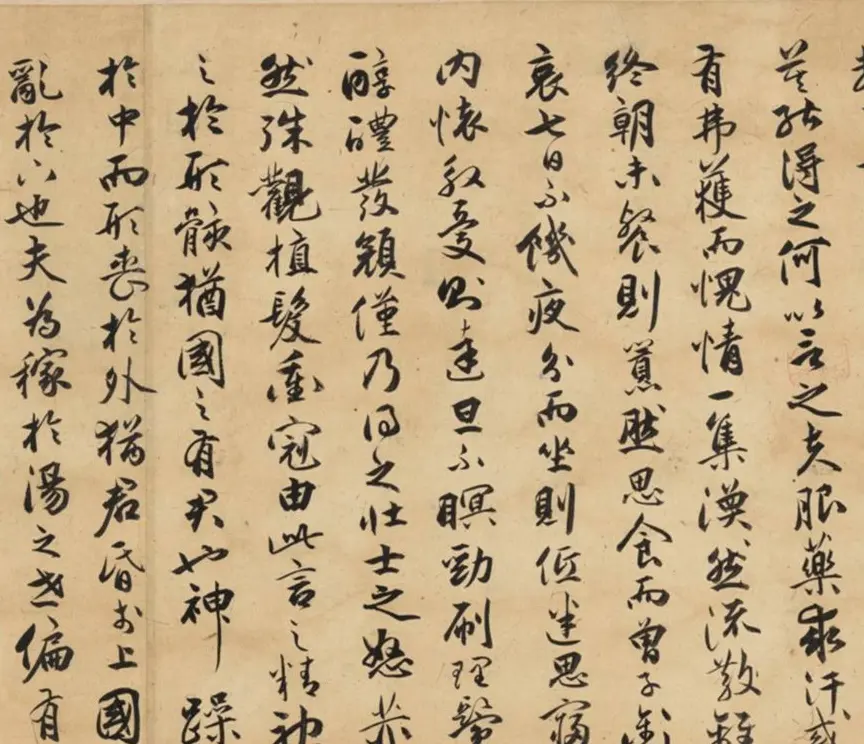 莫能得之何以言之夫服藥求汗或
有弗獲而愧情一集渙然流散
終朝未餐則囂然思食而曾子銜
哀七日不饑夜分而坐則低迷思寢
內懷殷憂則達旦不瞑勁刷理鬢
醇醴發顏僅乃得之壯士之怒赫
然殊觀植髮衝冠由此言之精神
之於形骸猶國之有君也神躁
於中而形喪於外猶君昏於上國
亂於下也夫為稼於湯之世偏有